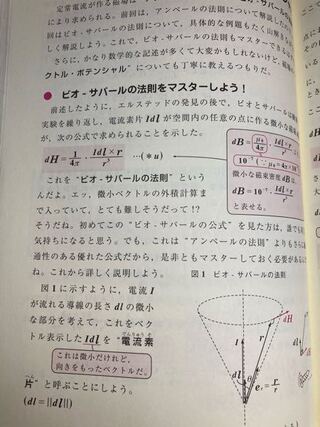 定常電流が作る磁場は
により求められる。前回は、アンペールの法則について解説し
回はビオ‐サバールの法則について、具体的な例題もたくさん解き
しく解説しよう。これで、ビオ‐サバールの法則もマスターできる
さらに、かなり数学的な記述が多くて大変かもしれないけど、
クトル・ポテンシャル”についても丁寧に教えるつもりだ。
● ビオ‐サバールの法則をマスターしよう！
前述したように、エルステッドの発見の後で、ビオとサバールは
実験を繰り返し、電流素片 Idl が空間内の任意の点に作る微小な磁
が、次の公式で求められることを示した。
dH = 1/4π · Idl × r/r³ …(*u)
dB = μ₀/4π · Idl × r
10⁻⁷ (∵ μ₀=4π×10
微小な磁束密度 dB
dB = 10⁻⁷ · Idl × r
と表せる。
これを“ビオ‐サバールの法則”という
んだよ。エッ、微小ベクトルの外積計算ま
で入っていて、とても難しそうだって!?
そうだね。初めてこの“ビオ‐サバールの公式”を見た方は、誰でも
気持ちになると思う。でも、これは“アンペールの法則”よりもさらに
通性のある優れた公式だから、是非ともマスターしておく必要がある
ね。これから詳しく説明しよう。
図1 ビオ‐サバールの法則
図1に示すように、電流 I
が流れる導線の長さ dl の微小
な部分を考えて、これをベク
トル表示した Idl を“電流素
でんりゅうそ
これは微小だけれど、
向きをもったベクトルだ。
へん
片”と呼ぶことにしよう。
(dl=||dl||)
dH
I
r
dl
θ
e_r = r/r